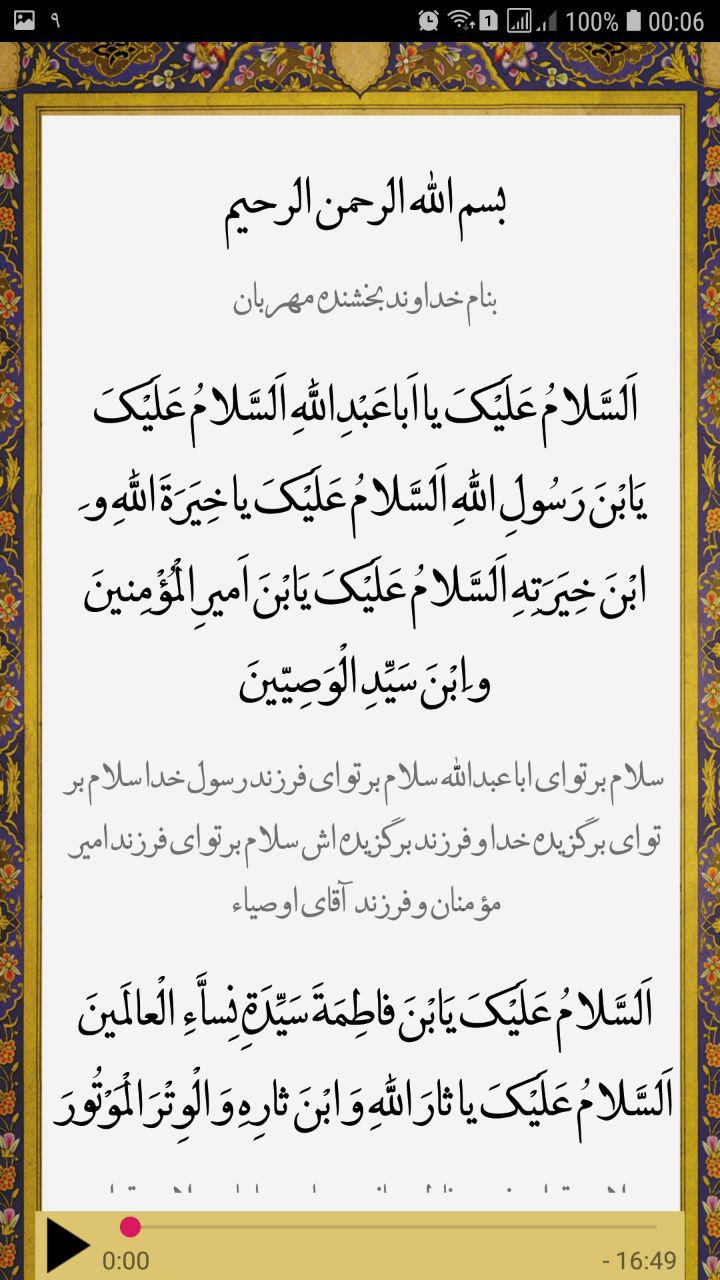 ۹ 100% 00:06
بسم الله الرحمن الرحیم
بنام خداوند بخشنده مهربان
اَلسَّلامُ عَلَیْکَ یا اَبا عَبْدِاللَّهِ اَلسَّلامُ عَلَیْکَ
یَابْنَ رَسُولِ اللَّهِ اَلسَّلامُ عَلَیْکَ یا خِیَرَةَ اللَّهِ و َ
ابْنَ خِیَرَتِهِ اَلسَّلامُ عَلَیْکَ یَابْنَ اَمیرِ الْمُؤْمِنینَ
و َابْنَ سَیِّدِ الْوَصِیّینَ
سلام بر تو ای ابا عبدالله سلام بر تو ای فرزند رسول خدا سلام بر
تو ای برگزیده خدا و فرزند برگزیده اش سلام بر تو ای فرزند امیر
مؤمنان و فرزند آقای اوصیاء
اَلسَّلامُ عَلَیْکَ یَابْنَ فاطِمَةَ سَیِّدَةِ نِساَّءِ الْعالَمینَ
اَلسَّلامُ عَلَیْکَ یا ثارَ اللَّهِ وَ ابْنَ ثارِهِ وَ الْوِتْرَ الْمَوْتُورَ
0:00 - 16:49